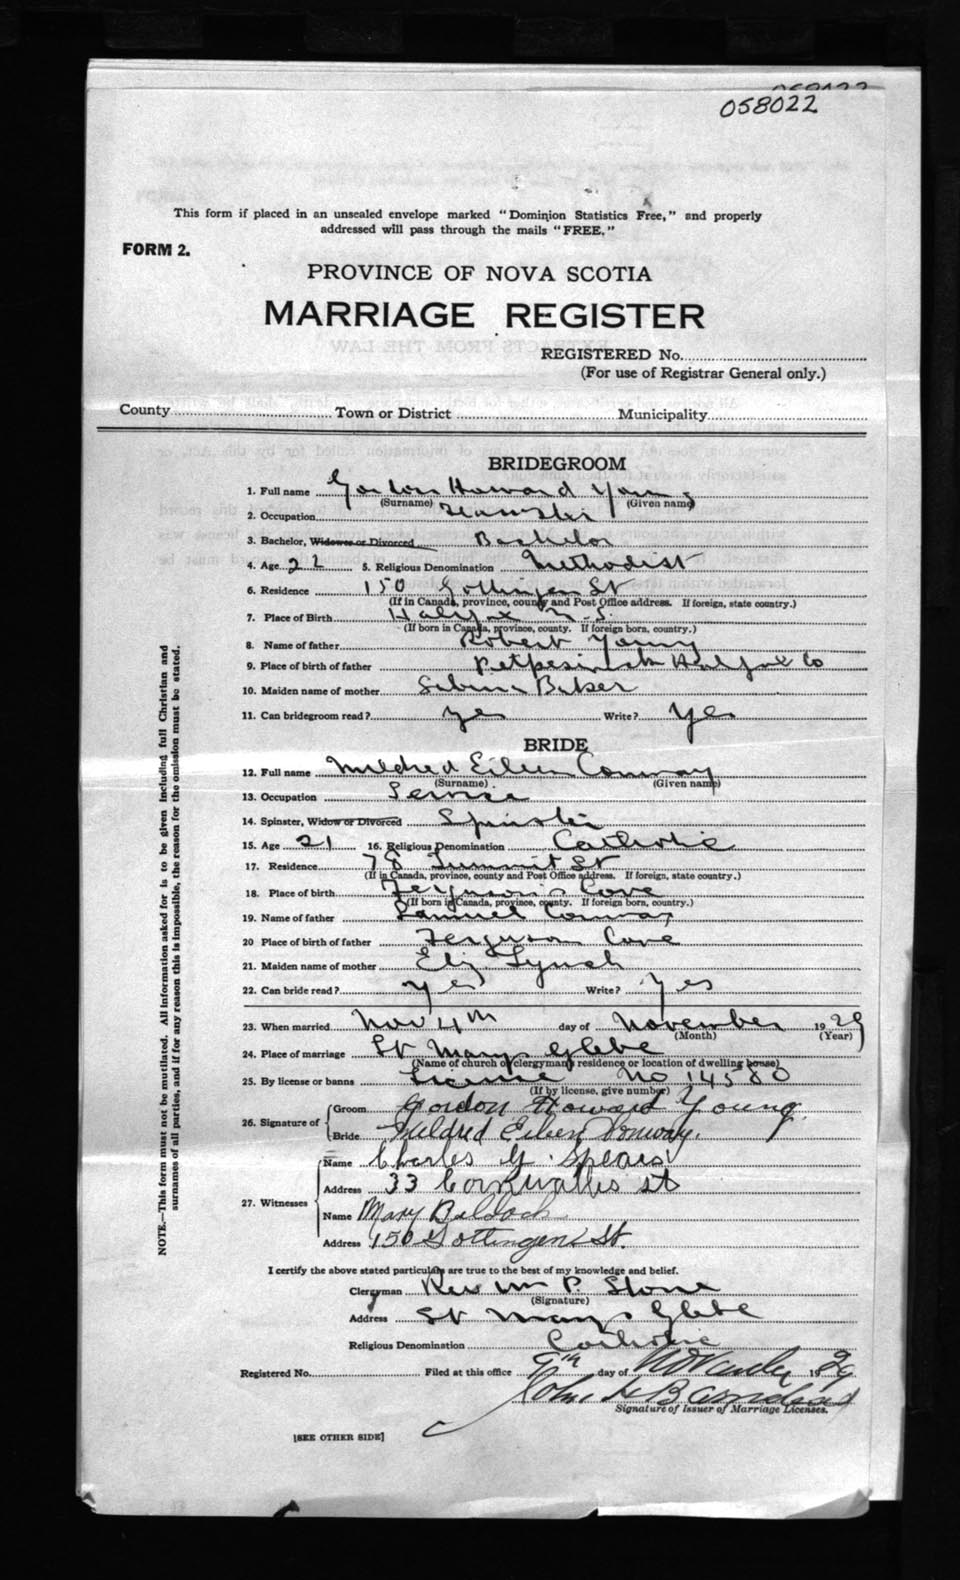 058022
This form if placed in an unsealed envelope marked "Dominion Statistics Free," and properly
addressed will pass through the mails "FREE."
FORM 2.
PROVINCE OF NOVA SCOTIA
MARRIAGE REGISTER
REGISTERED No.
(For use of Registrar General only.)
County Town or District Municipality
BRIDEGROOM
1. Full name Gordon Howard Young
(Surname) (Given name)
2. Occupation Teamster
3. Bachelor, Widower or Divorced Bachelor
4. Age 22 5. Religious Denomination Methodist
6. Residence 150 Gottingen St
(If in Canada, province, county and Post Office address. If foreign, state country.)
7. Place of Birth Halifax N.S.
(If born in Canada, province, county. If foreign born, country.)
8. Name of father Robert Young
9. Place of birth of father Petpeswick Halifax Co
10. Maiden name of mother Sabina Baker
11. Can bridegroom read? yes Write? yes
BRIDE
12. Full name Mildred Eileen Conway
(Surname) (Given name)
13. Occupation Service
14. Spinster, Widow or Divorced Spinster
15. Age 21 16. Religious Denomination Catholic
17. Residence 78 Summit St
(If in Canada, province, county and Post Office address. If foreign, state country.)
18. Place of birth Ferguson's Cove
(If born in Canada, province, county. If foreign born, country.)
19. Name of father Samuel Conway
20 Place of birth of father Ferguson Cove
21. Maiden name of mother Eliz Lynch
22. Can bride read? yes Write? Yes
23. When married Nov 4th day of November 1929
(Month) (Year)
24. Place of marriage St Marys Glebe
(Name of church or clergyman's residence or location of dwelling house)
25. By license or banns License No 14580
(If by license, give number)
26. Signature of
Groom Gordon Howard Young.
Bride Mildred Eileen Conway.
27. Witnesses
Name Charles G. Spears
Address 33 Cornwallis st
Name Mary Baldock
Address 150 Gottingen St.
I certify the above stated particulars are true to the best of my knowledge and belief.
Clergyman Rev Wm P. Stone
(Signature)
Address St Marys Glebe
Religious Denomination Catholic
Registered No. Filed at this office 9th day of November 1929
John
Signature of Issuer of Marriage Licenses.
[SEE OTHER SIDE]
NOTE.—This form must not be mutilated. All information asked for is to be given including full Christian and
surnames of all parties, and if for any reason this is impossible, the reason for the omission must be stated.